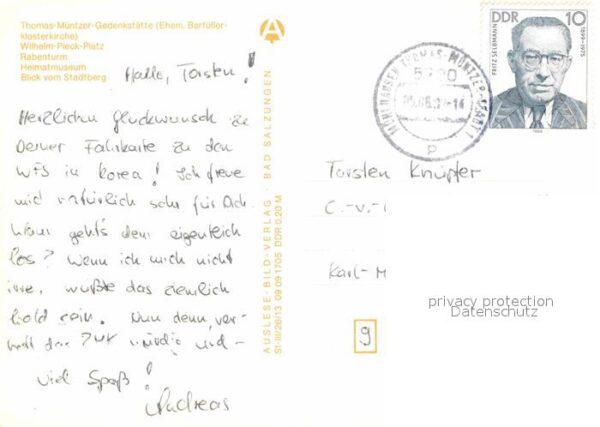 Thomas-Müntzer-Gedenkstätte (Ehem. Barfüßer-
klosterkirche)
Wilhelm-Pieck-Platz
Rabenturm
Heimatmuseum
Blick vom Stadtberg
Hallo, Torsten!
Herzlichen Glückwunsch zu
Deiner Fahrkarte zu den
WFS in Korea! Ich freue
mich natürlich sehr für Dich.
Wann geht's denn eigentlich
los? Wenn ich mich nicht
irre, müßte das ziemlich
bald sein. Nun denn,
und
viel Spaß!
Andreas
AUSLESE-BILD-VERLAG · BAD SALZUNGEN
St-III/26/13 09 09 1705 DDR 0,20 M
MÜHLHAUSEN THOMAS-MÜNTZER-STADT 1
5700
p
DDR 10
FRITZ SELBMANN
1899-1975
1989
Torsten Knüpfer
C.-v.-
Karl-M
9
privacy protection
Datenschutz